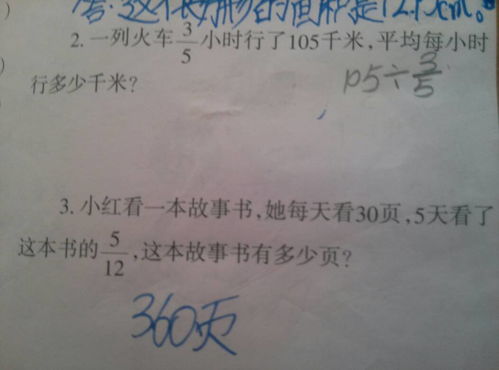 答:这个长方形的面积是12
2. 一列火车3/5小时行了105千米,平均每小时
行多少千米?
105÷3/5
3. 小红看一本故事书,她每天看30页,5天看了
这本书的5/12,这本故事书有多少页?
360页